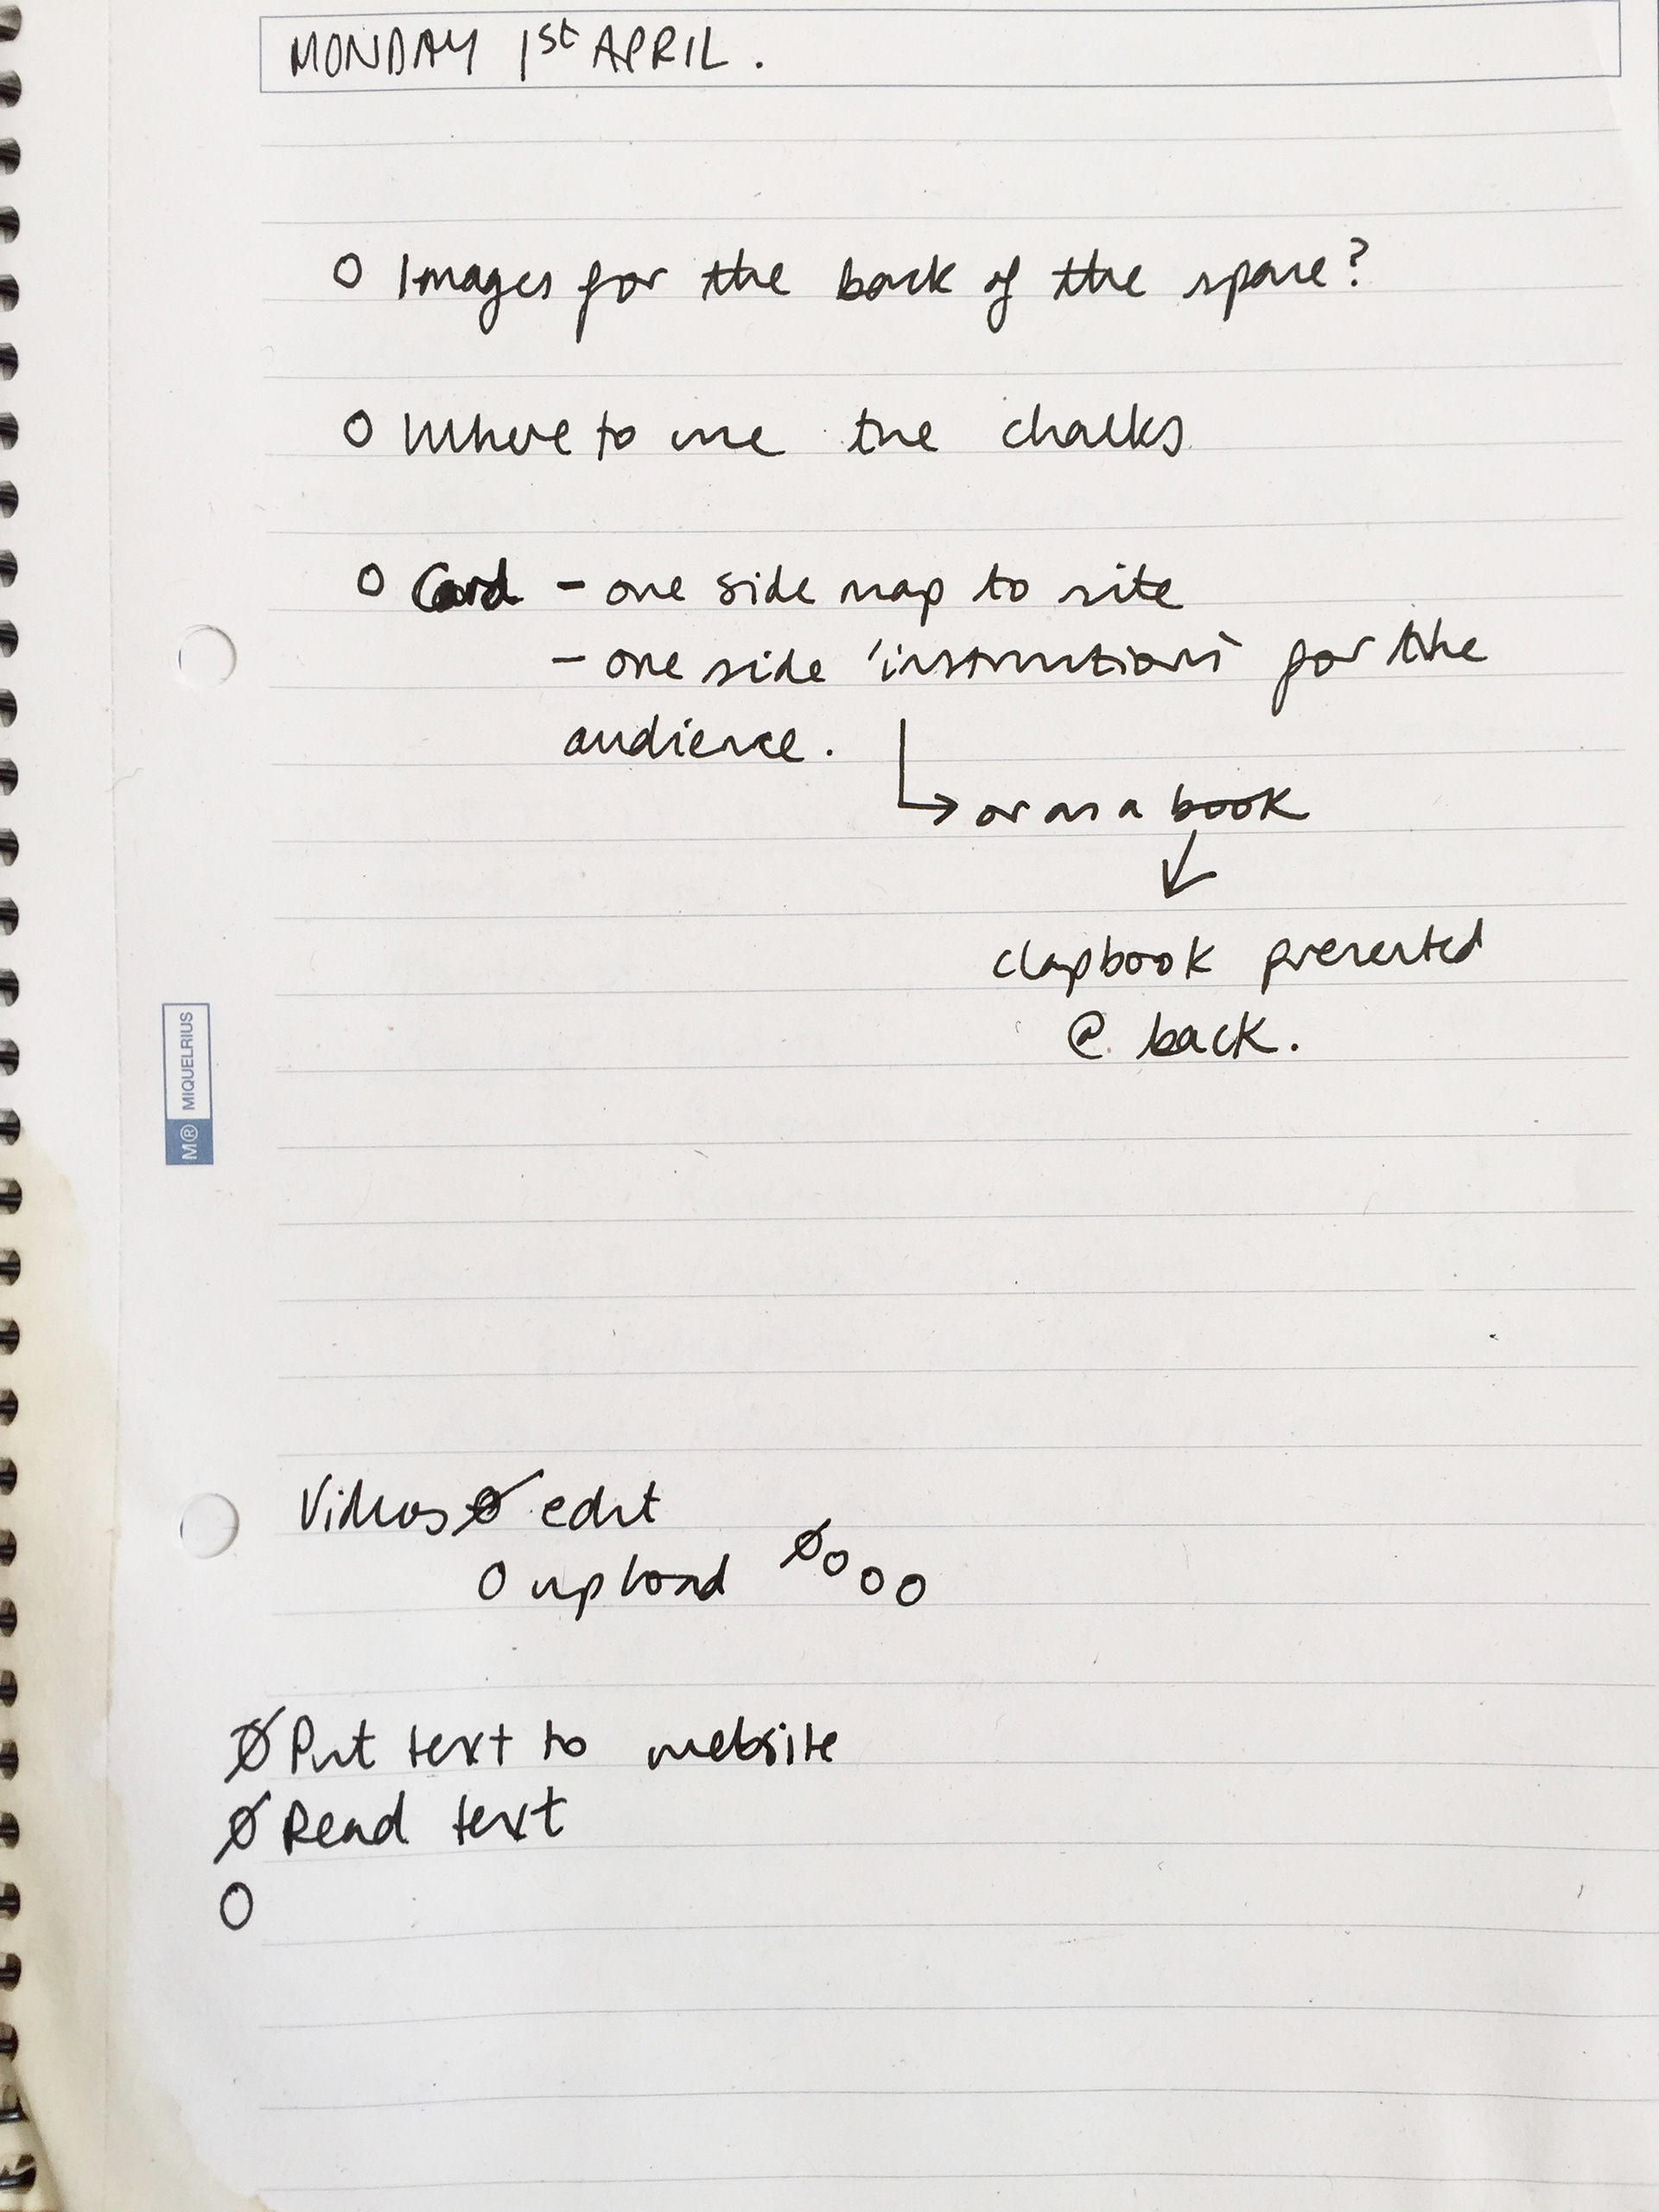 MONDAY 1st APRIL.
O Images for the back of the space?
O Where to use the chalks
O Card - one side map to site
- one side 'instructions' for the
audience.
↳ or as a book
↓
clapbook presented
@ back.
M® MIQUELRIUS
Videos Ø edit
O upload Ø O O O
Ø Put text to website
Ø Read text
O